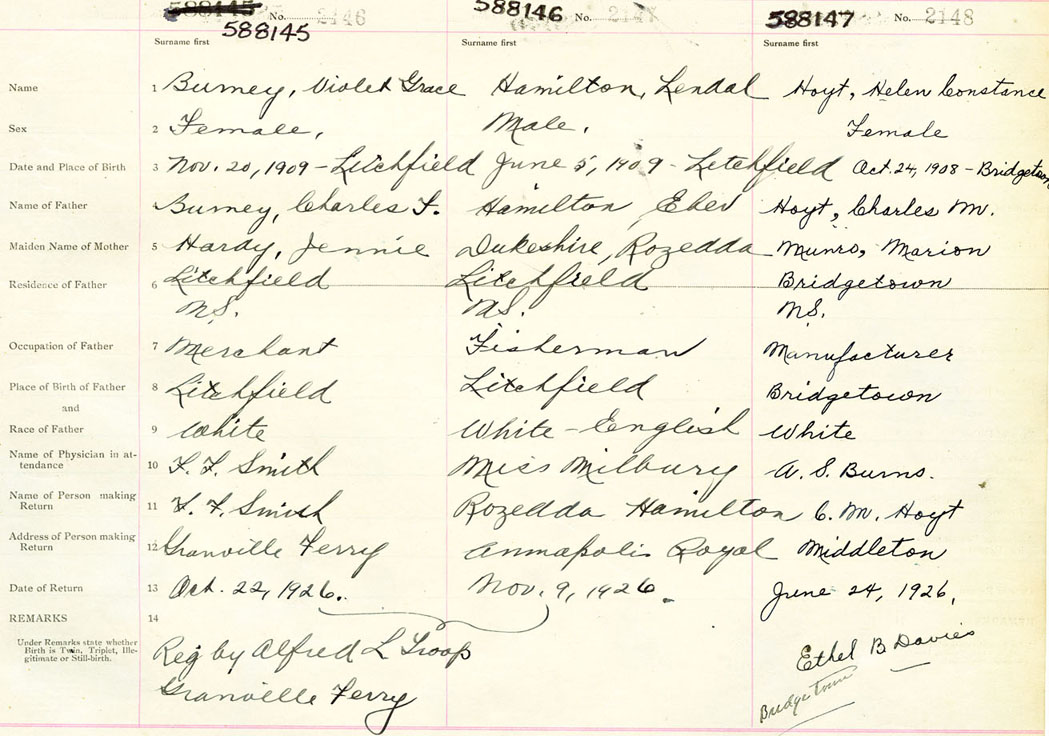 588145 No. 2146 588146 No. 2147 588147 No. 2148
588145
Surname first Surname first Surname first
Name 1 Burney, Violet Grace Hamilton, Lendal Hoyt, Helen Constance
Sex 2 Female, Male. Female
Date and Place of Birth 3 Nov. 20, 1909 - Litchfield June 5, 1909 - Letchfield Oct. 24, 1908 - Bridgetown
Name of Father 4 Burney, Charles F. Hamilton Eber Hoyt, Charles M.
Maiden Name of Mother 5 Hardy, Jennie Dukeshire, Rozedda Munro, Marion
Residence of Father 6 Litchfield Litchfield Bridgetown
N.S. N.S. N.S.
Occupation of Father 7 Merchant Fisherman Manufacturer
Place of Birth of Father 8 Litchfield Litchfield Bridgetown
and
Race of Father 9 White White - English White
Name of Physician in at-
tendance 10 F. F. Smith Miss Milbury A. S. Burns.
Name of Person making
Return 11 F. F. Smith Rozedda Hamilton C. M. Hoyt
Address of Person making
Return 12 Granville Ferry Annapolis Royal Middleton
Date of Return 13 Oct. 22, 1926. Nov. 9, 1926. June 24, 1926.
REMARKS 14
Under Remarks state whether
Birth is Twin, Triplet, Ille-
gitimate or Still-birth.
Reg by Alfred L Troop Ethel B Davies
Granville Ferry Bridgetown